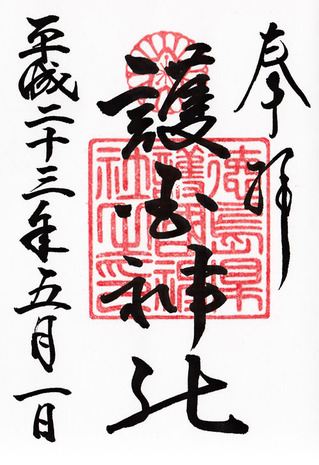 奉拝
徳島県
護國神
社之印
護国神社
平成二十三年五月一日